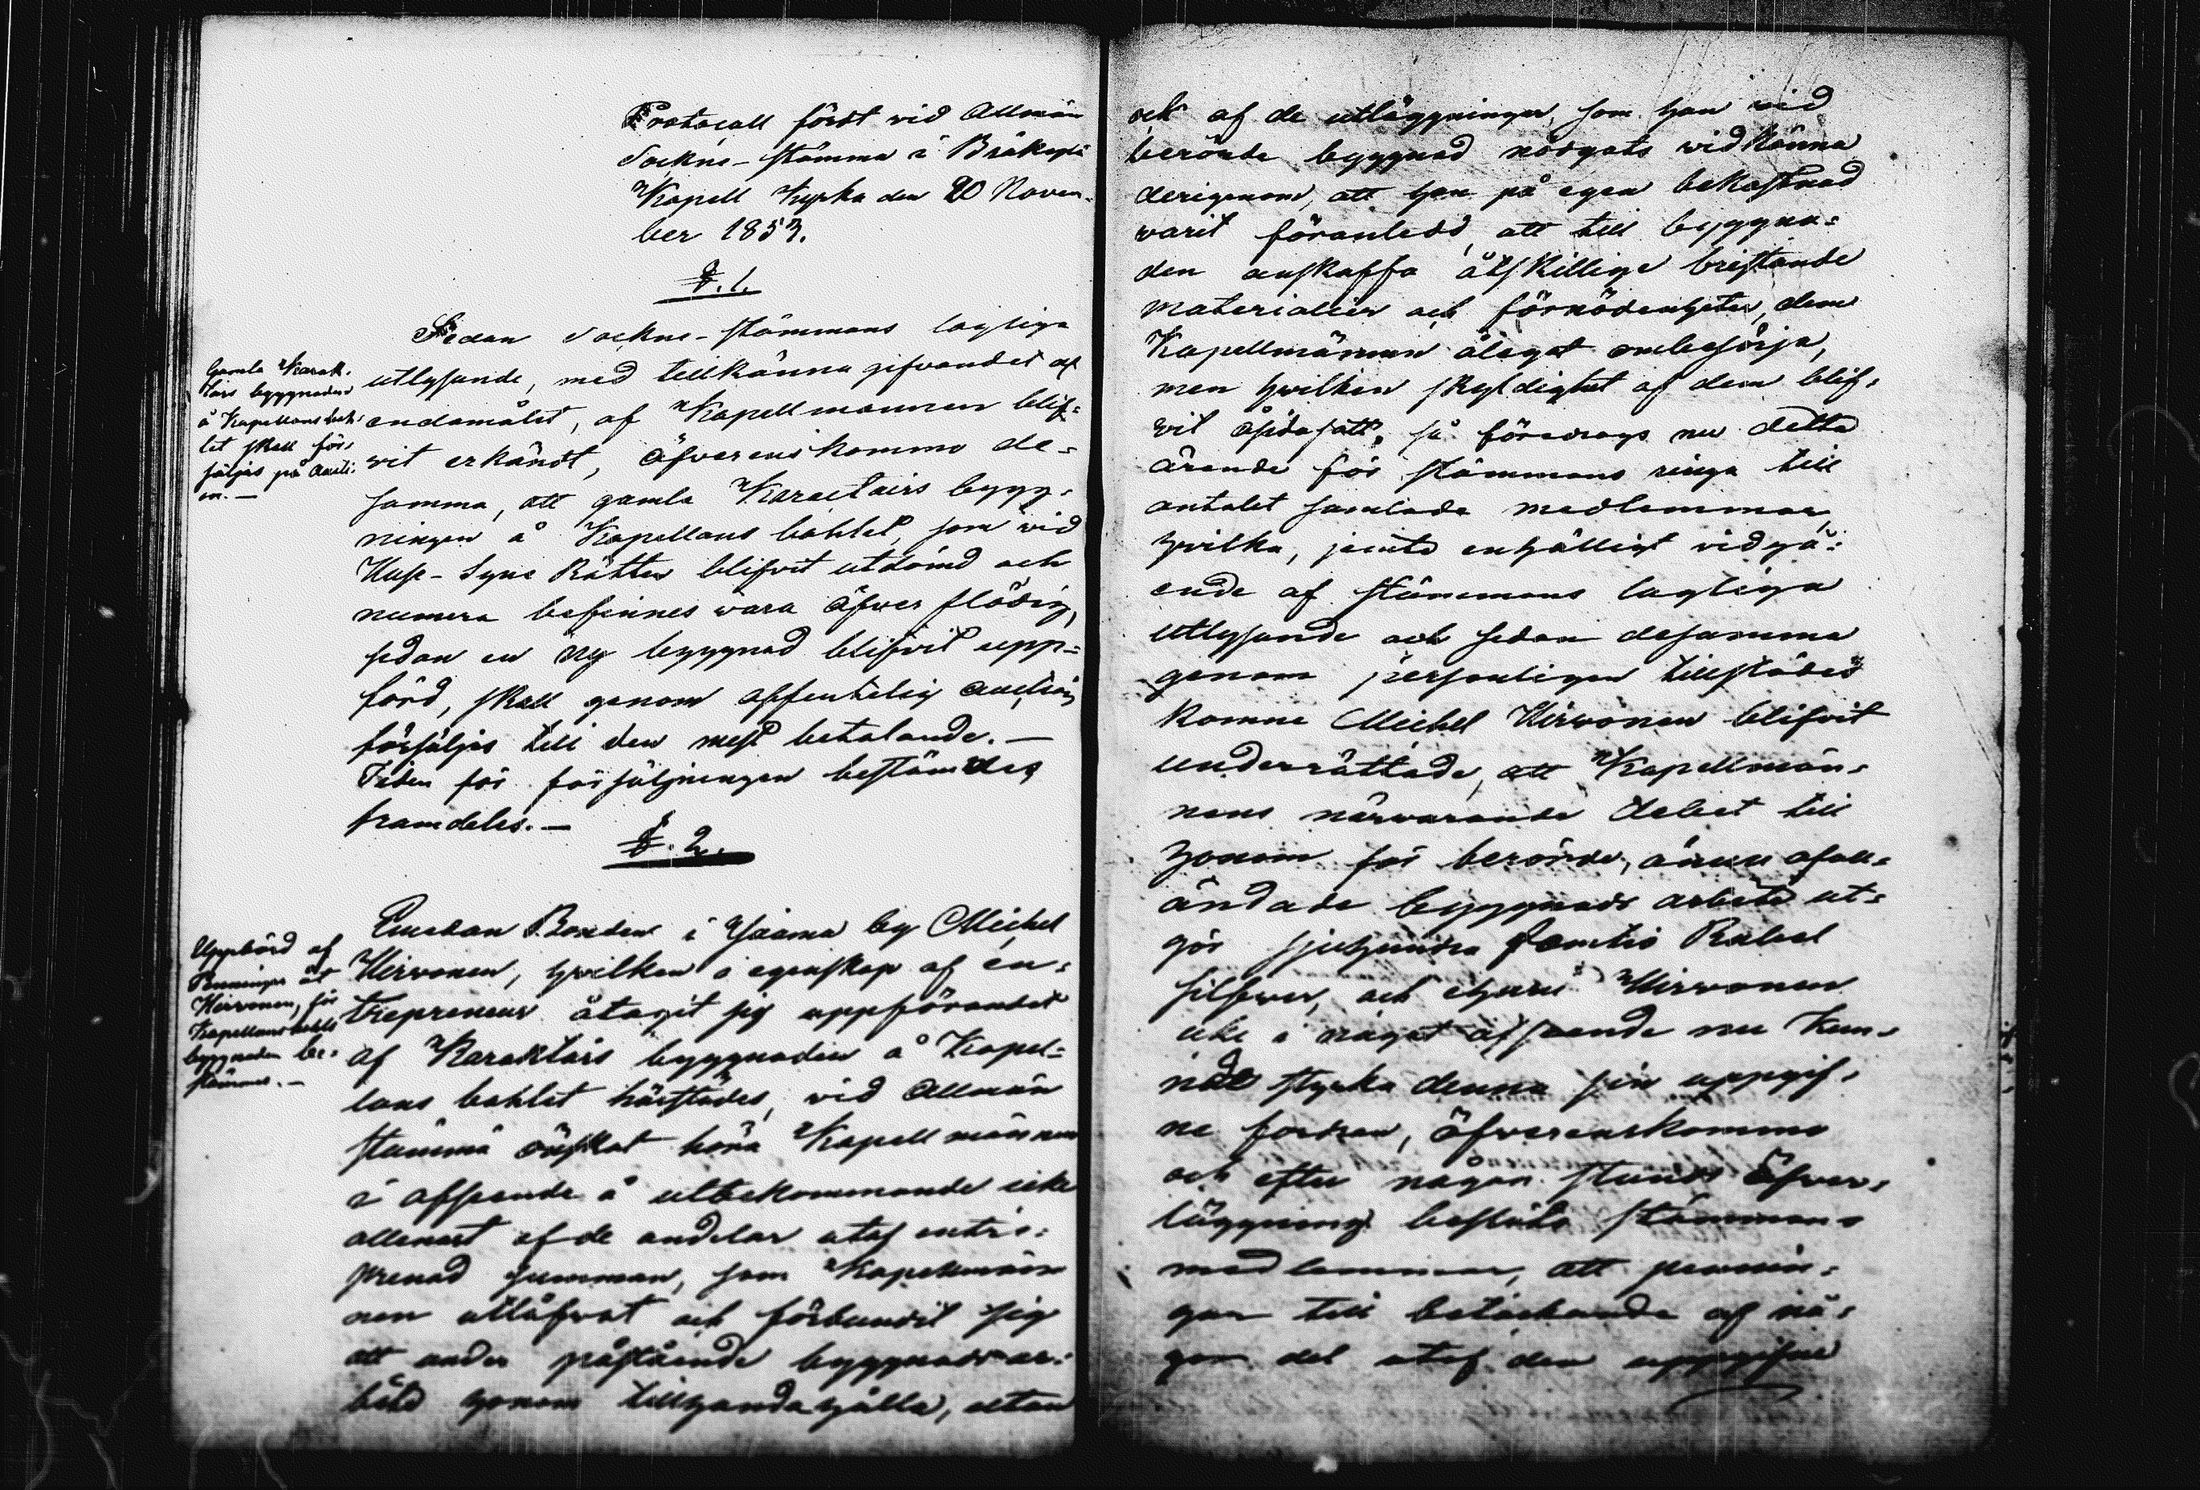 Protocall fördt vid Allmän
Sockne-stämma i Bräkylä
Kapell Kyrka den 20 Novem-
ber 1853.
§. 1.
Sedan Sockne-stämmans lagliga
utlysande, med tillkänna gifvandet af
endamålet, af Kapellmännen blif-
vit erkändt, öfverenskommo de-
samma, att gamla Karactairs bygg-
ningen å Kapellans bohlet, som vid
Huse-Syne Rätten blifvit utdömd och
numera befinnes vara öfverflödig,
sedan en ny byggnad blifvit upp-
förd, skall genom offentelig auction
försäljas till den mest betalande.—
Tiden för försäljningen bestämdes
framdeles.—
Gamla Karak-
tairs byggnaden
å Kapellans boh-
let skall för-
säljas på Aucti-
on.—
§. 2.
Enedan Bonden i by Michel
Hirvonen, hvilken i egenskap af en-
trepreneur åtagit sig uppförandet
af Karaktairs byggnaden å Kapel-
lans bohlet härstädes, vid Allmän
stämma önskat höra Kapellmännen
i afseende å utbekommande icke
allenast af de andelar utaf entre-
prenad summan, som Kapellmän-
nen utlåfvat och förbundit sig
att under påstående byggnads ar-
bete honom tillhandahålla, utan
Uppbörd af
Penningar åt
Hirvonen, för
Kapellans bohls
byggnaden be-
stämmes.—
ock af de utläggningar, som han vid
berörde byggnad nödgats vidkänna
derigenom, att han på egen bekostnad
varit föranledd, att till byggna-
den anskaffa åtskillige bristande
materialier och förnödenheter, dem
Kapellmännen ålegat ombesörja,
men hvilken skyldighet af dem blif-
vit åsidosatt, så föredrogs nu detta
ärende för stämmans ringa till
antalet samlade medlemmar,
hvilka, jemte enhälligt vidgå-
ende af stämmans lagliga
utlysande och sedan desamma
genom personligen tillstädes
komne Michel Hirvonen blifvit
underrättade, att Kapellmän-
nens närvarande debet till
honom för berörde, ännu ofull-
ändade byggnads arbete ut-
gör sjuhundra Rubel
silfver, och ehuru Hirvonen
icke i något afseende nu kun-
nat styrka denna sin uppgif-
ne fordran, öfverenskommo
och efter någon stunds öfver-
läggning beslöto stämmans
medlemmar, att pennin-
gar till betäckande af nå-
gon del utaf den uppgifne